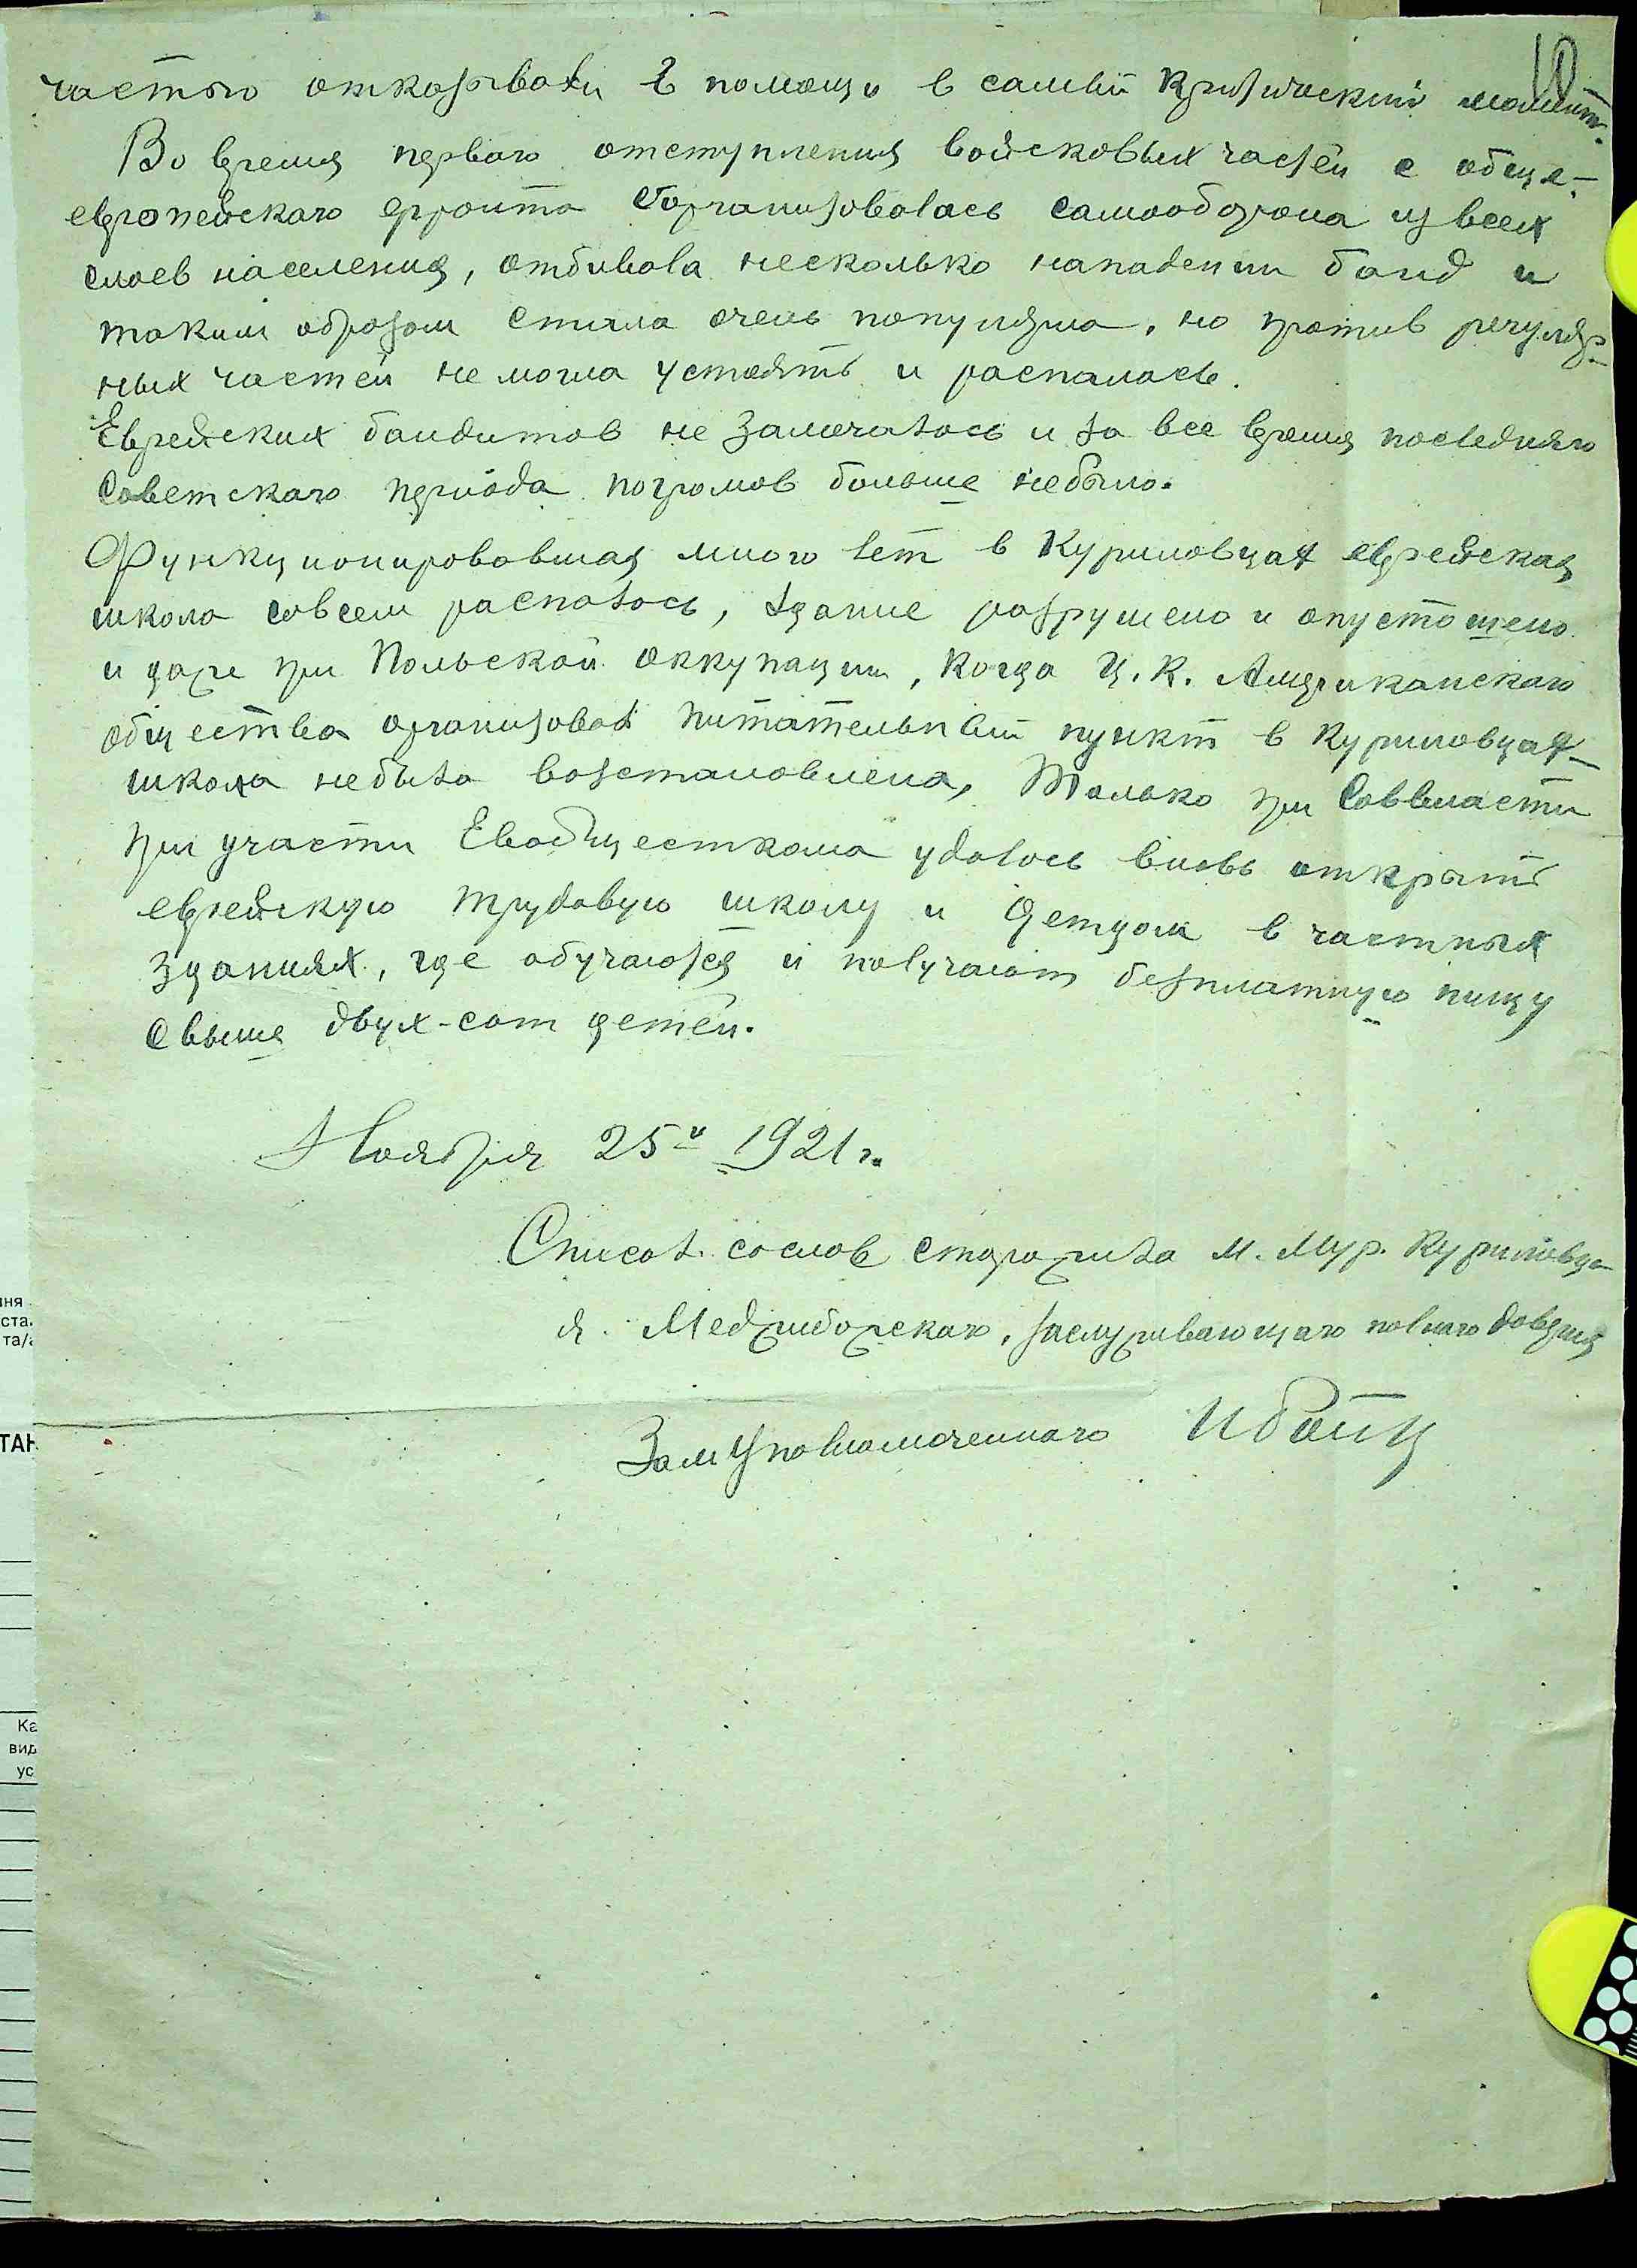 10
частью отказывали в помощи в самый критический момент.
Во время перваго отступления войсковых частей с обще-
европейскаго фронта сорганизовалась самооборона из всех
слоев населения, отбивала несколько нападении банд и
таким образом стяжала очень популярна, но против регуляр-
ных частей не могла устоять и распалась.
Еврейских бандитов не замечалось и за все время последняго
Советскаго периода погромов больше небыло.
Функционировавшая много лет в Куриловцах еврейская
школа совсем распалась, здание разрушено и опустошено
и даже при Польской оккупации, когда Ц.К. Американскаго
общества организовал питательный пункт в Куриловцах
школа небыла возстановлена, Только при Соввласти
при участи Евобщесткома удалось вновь открыть
еврейскую трудовую школу и Детдом в частных
зданиях, где обучаются и получают безплатную пищу
свыше двух-сот детей.
Ноября 25го 1921 г.
Списал со слов старожила м. Мур. Куриловцы
Я. Меджибожскаго, заслуживающаго полнаго доверия
Зам Уполномоченнаго
ня
ста.
та/
ТАН
Ка
вид
ус